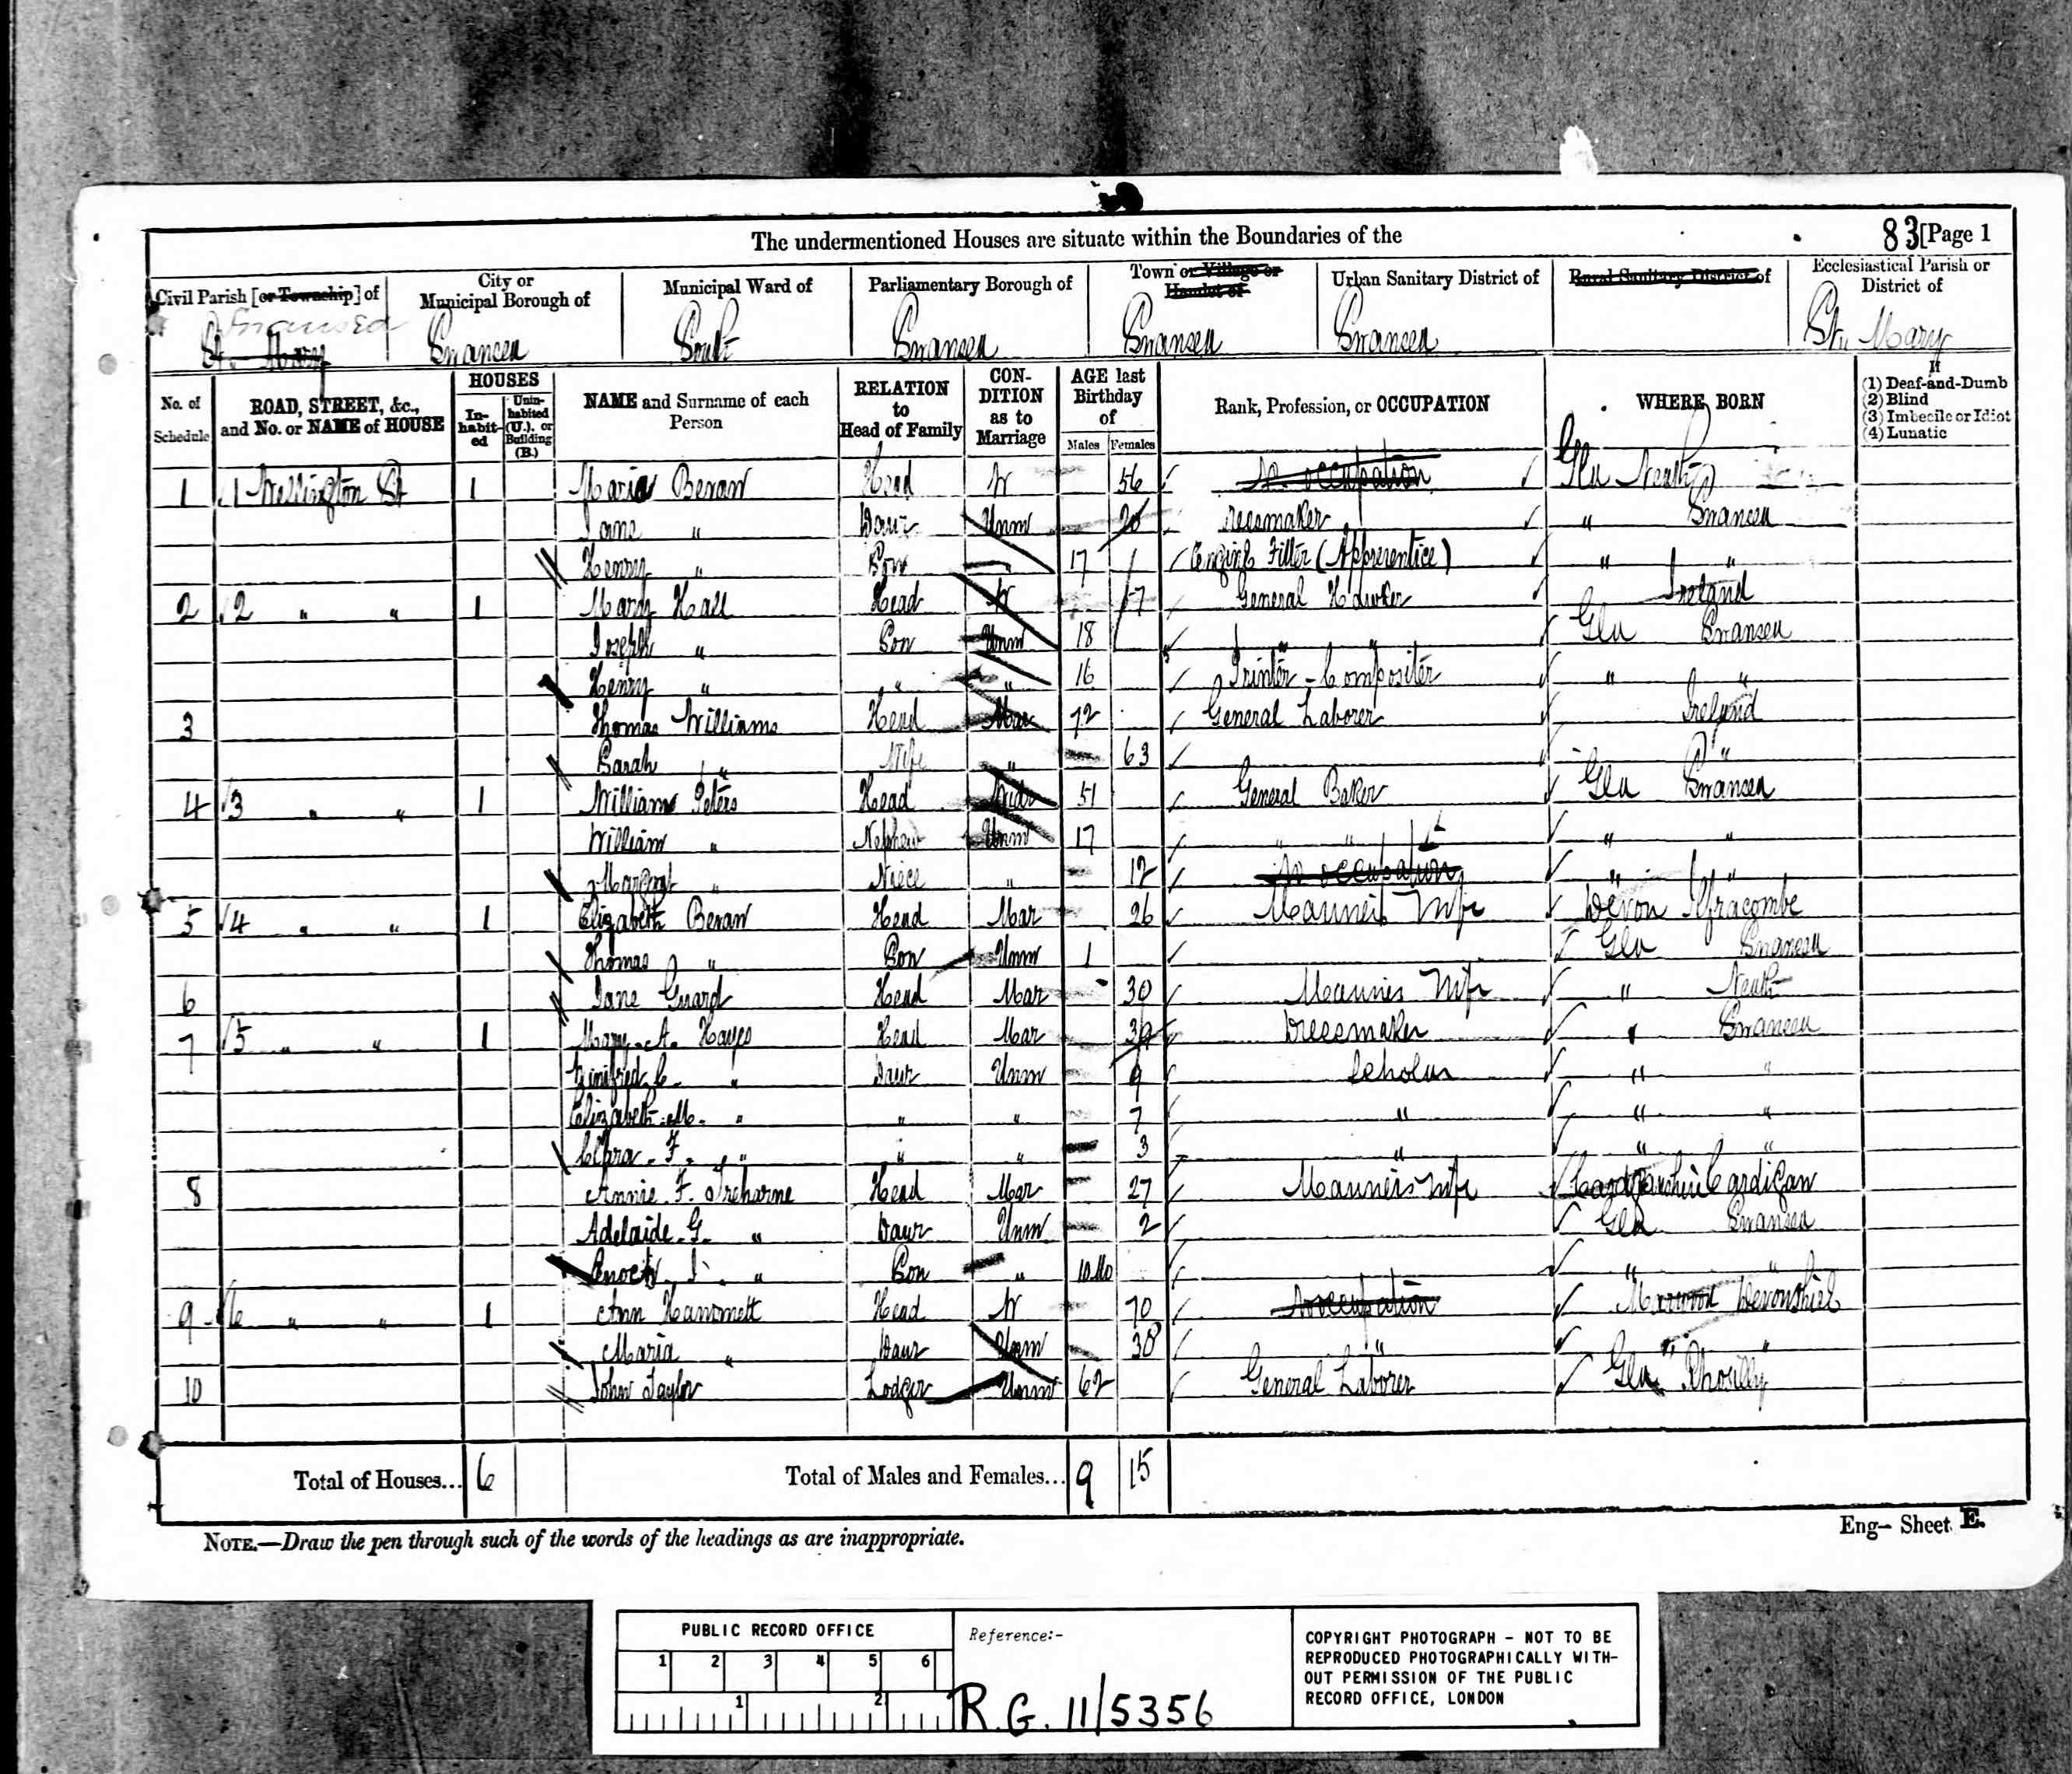 The undermentioned Houses are situate within the Boundaries of the
83 [Page 1
Civil Parish [or Township] of
City or Municipal Borough of
Municipal Ward of
Parliamentary Borough of
Town or Village or Hamlet of
Urban Sanitary District of
Rural Sanitary District of
Ecclesiastical Parish or District of
Swansea
St. Mary Swansea South Swansea Swansea Swansea St. Mary
No. of Schedule
ROAD, STREET, &c., and No. or NAME of HOUSE
HOUSES
In-habit-ed
Unin-habited (U.), or Building (B.)
NAME and Surname of each Person
RELATION to Head of Family
CON-DITION as to Marriage
AGE last Birthday of
Males Females
Rank, Profession, or OCCUPATION
WHERE BORN
If
(1) Deaf-and-Dumb
(2) Blind
(3) Imbecile or Idiot
(4) Lunatic
1 1 Wellington St 1 Maria Bevan Head W 56 No occupation Gla Neath
Jane " Daur Unm 20 Dressmaker " Swansea
Henry " Son " 17 Engine Fitter (Apprentice) " "
2 2 " " 1 Mary Hall Head W General Hawker Ireland
Joseph " Son Unm 18 " " Gla Swansea
Henry " " " 16 Printer-Compositer " "
3 Thomas Williams Head Mar 72 General Laborer Ireland
Sarah " Wife " 63 "
4 3 " " 1 William Peters Head Widr 51 General Baker Gla Swansea
William " Nephew Unm 17 " " " "
Margart " Niece " 12 No occupation " "
5 4 " " 1 Elizabeth Bevan Head Mar 26 Mariners Wife Devon Ilfracombe
Thomas " Son Unm 1 Gla Swansea
6 Jane Guard Head Mar 30 Mariners Wife " Neath
7 5 " " 1 Mary. A. Hayes Head Mar Dressmaker " Swansea
Winifred C. " Daur Unm 9 Scholar " "
Elizabeth. M. " " " 7 " " "
Clara. F. " " " 3 " " "
8 Annie. F. Treharne Head Mar 27 Mariners Wife Cardiganshire Cardigan
Adelaide. G. " Daur Unm 2 Gla Swansea
Enoch. J. " Son " 10 Mo " "
9 6 " " 1 Ann Hammett Head W 70 No occupation Devonshire
Maria " Daur Unm 38 " " "
10 John Taylor Lodger Unm 62 General Laborer Gla Rhosilly
Total of Houses... 6 Total of Males and Females... 9 15
NOTE.—Draw the pen through such of the words of the headings as are inappropriate.
Eng— Sheet E.
PUBLIC RECORD OFFICE
1 2 3 4 5 6
1 2
Reference:-
R.G. 11/5356
COPYRIGHT PHOTOGRAPH - NOT TO BE
REPRODUCED PHOTOGRAPHICALLY WITH-
OUT PERMISSION OF THE PUBLIC
RECORD OFFICE, LONDON